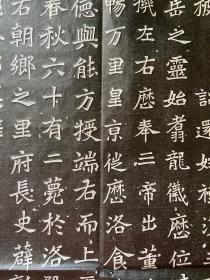 岳之靈始翥龍儀歷位
機左右歷奉三帝出董
暢万里皇京從歷洛食
德與能方授端右而上
春秋六十有二薨於洛
右朝鄉之里府長史薛